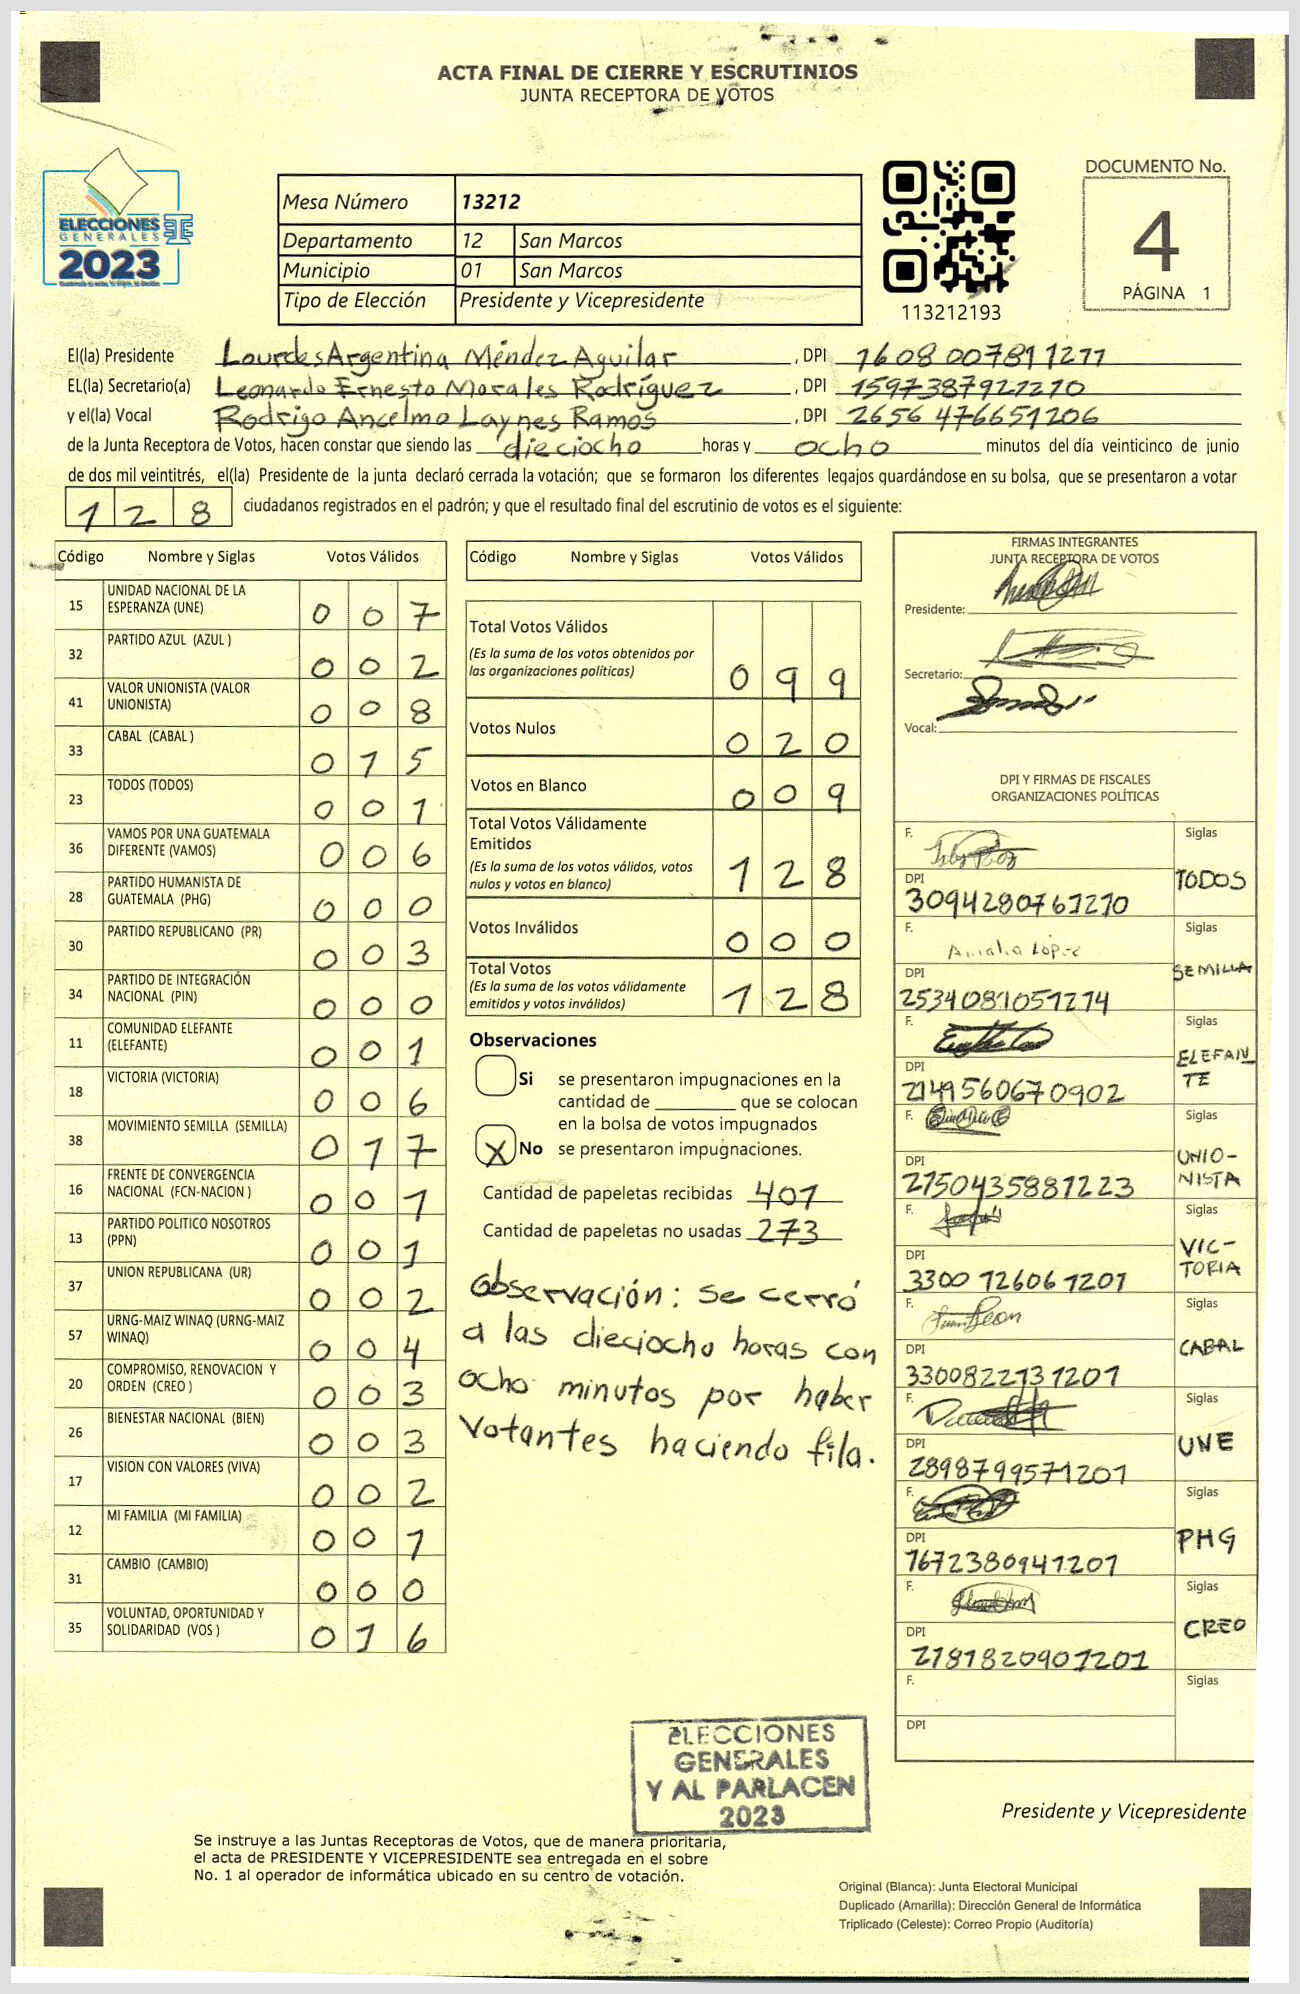 ACTA FINAL DE CIERRE Y ESCRUTINIOS
JUNTA RECEPTORA DE VOTOS
ELECCIONES
GENERALES
2023
Mesa Número 13212
Departamento 12 San Marcos
Municipio 01 San Marcos
Tipo de Elección Presidente y Vicepresidente
113212193
DOCUMENTO No.
4
PÁGINA 1
El(la) Presidente Lourdes Argentina Méndez Aguilar, DPI 1608 00781 1211
EL(la) Secretario(a) Leonardo Ernesto Morales Rodríguez, DPI 1597387921210
y el(la) Vocal Rodrigo Ancelmo Laynes Ramos, DPI 2656 476651206
de la Junta Receptora de Votos, hacen constar que siendo las dieciocho horas y ocho minutos del día veinticinco de junio
de dos mil veintitrés, el(la) Presidente de la junta declaró cerrada la votación; que se formaron los diferentes legajos guardándose en su bolsa, que se presentaron a votar
128 ciudadanos registrados en el padrón; y que el resultado final del escrutinio de votos es el siguiente:
Código Nombre y Siglas Votos Válidos
15 UNIDAD NACIONAL DE LA ESPERANZA (UNE) 007
32 PARTIDO AZUL (AZUL ) 002
41 VALOR UNIONISTA (VALOR UNIONISTA) 008
33 CABAL (CABAL ) 015
23 TODOS (TODOS) 001
36 VAMOS POR UNA GUATEMALA DIFERENTE (VAMOS) 006
28 PARTIDO HUMANISTA DE GUATEMALA (PHG) 000
30 PARTIDO REPUBLICANO (PR) 003
34 PARTIDO DE INTEGRACIÓN NACIONAL (PIN) 000
11 COMUNIDAD ELEFANTE (ELEFANTE) 001
18 VICTORIA (VICTORIA) 006
38 MOVIMIENTO SEMILLA (SEMILLA) 017
16 FRENTE DE CONVERGENCIA NACIONAL (FCN-NACION ) 001
13 PARTIDO POLITICO NOSOTROS (PPN) 001
37 UNION REPUBLICANA (UR) 002
57 URNG-MAIZ WINAQ (URNG-MAIZ WINAQ) 004
20 COMPROMISO, RENOVACION Y ORDEN (CREO ) 003
26 BIENESTAR NACIONAL (BIEN) 003
17 VISION CON VALORES (VIVA) 002
12 MI FAMILIA (MI FAMILIA) 001
31 CAMBIO (CAMBIO) 000
35 VOLUNTAD, OPORTUNIDAD Y SOLIDARIDAD (VOS ) 016
Código Nombre y Siglas Votos Válidos
Total Votos Válidos 099
(Es la suma de los votos obtenidos por
las organizaciones políticas)
Votos Nulos 020
Votos en Blanco 009
Total Votos Válidamente
Emitidos 128
(Es la suma de los votos válidos, votos
nulos y votos en blanco)
Votos Inválidos 000
Total Votos 128
(Es la suma de los votos válidamente
emitidos y votos inválidos)
Observaciones
Si se presentaron impugnaciones en la
cantidad de ________ que se colocan
en la bolsa de votos impugnados
X No se presentaron impugnaciones.
Cantidad de papeletas recibidas 401
Cantidad de papeletas no usadas 273
Observación: Se cerró
a las dieciocho horas con
ocho minutos por haber
Votantes haciendo fila.
FIRMAS INTEGRANTES
JUNTA RECEPTORA DE VOTOS
Presidente:
Secretario:
Vocal:
DPI Y FIRMAS DE FISCALES
ORGANIZACIONES POLÍTICAS
F. Siglas
DPI TODOS
3094280761210
F. Amalia López Siglas
DPI SEMILLA
2534081051214
F. Siglas
DPI ELEFAN
TE
2149560670902
F. Siglas
DPI UNIO-
NISTA
2750435881223
F. Siglas
DPI VIC-
TORIA
3300 126061201
F. Siglas
DPI CABAL
3300822131201
F. Siglas
DPI UNE
2898799571201
F. Siglas
DPI PHG
1672380941201
F. Siglas
DPI CREO
2181820901201
F. Siglas
DPI
ELECCIONES
GENERALES
Y AL PARLACEN
2023
Presidente y Vicepresidente
Se instruye a las Juntas Receptoras de Votos, que de manera prioritaria,
el acta de PRESIDENTE Y VICEPRESIDENTE sea entregada en el sobre
No. 1 al operador de informática ubicado en su centro de votación.
Original (Blanca): Junta Electoral Municipal
Duplicado (Amarilla): Dirección General de Informática
Triplicado (Celeste): Correo Propio (Auditoría)